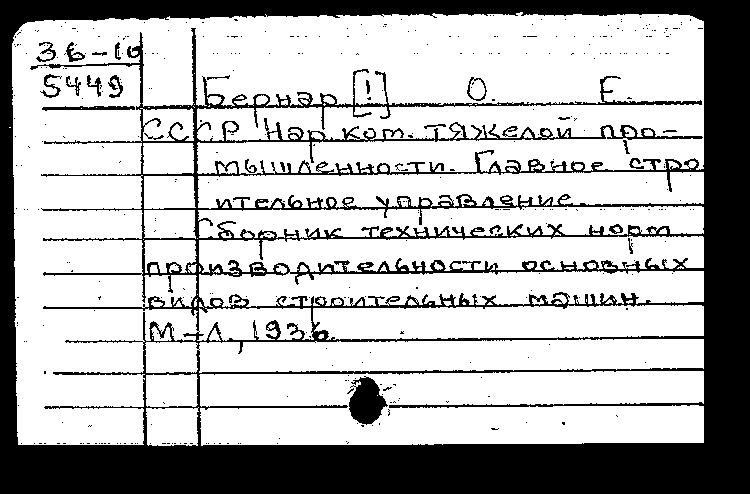 36-10
5449
Бернар [!] О. Е.
СССР Нар. ком. тяжелой про-
мышленности. Главное стро
ительное управление.
Сборник технических норм
производительности основных
видов строительных машин.
М.-Л., 1936.